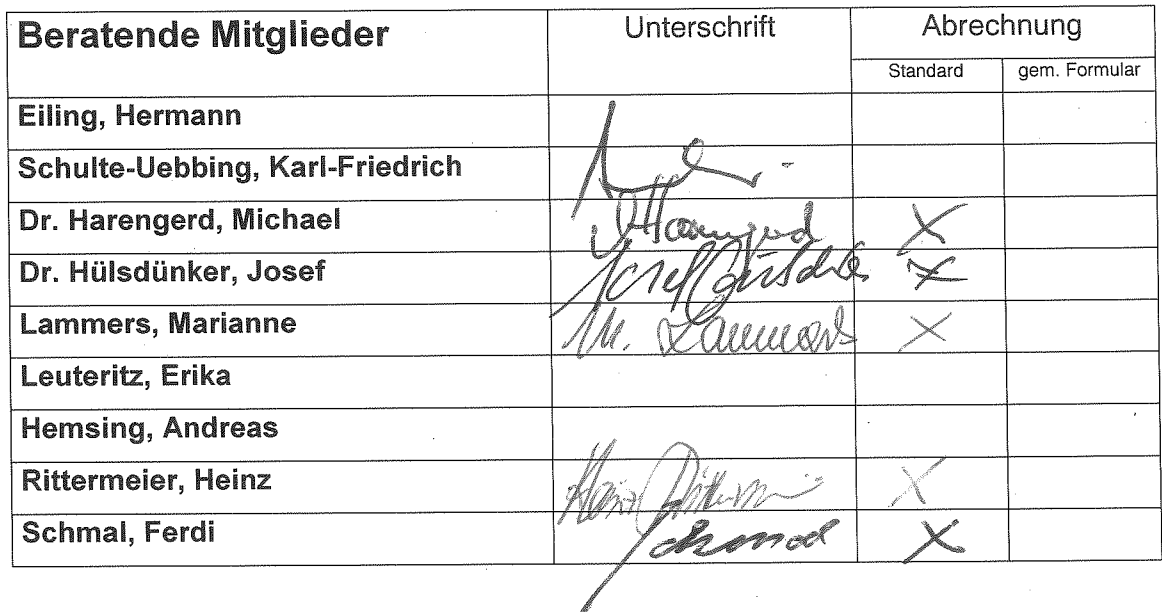 Beratende Mitglieder Unterschrift Abrechnung
Standard gem. Formular
Eiling, Hermann
Schulte-Uebbing, Karl-Friedrich
Dr. Harengerd, Michael Harengerd X
Dr. Hülsdünker, Josef Josef X
Lammers, Marianne M. Lammers X
Leuteritz, Erika
Hemsing, Andreas
Rittermeier, Heinz Heinz X
Schmal, Ferdi Schmal X